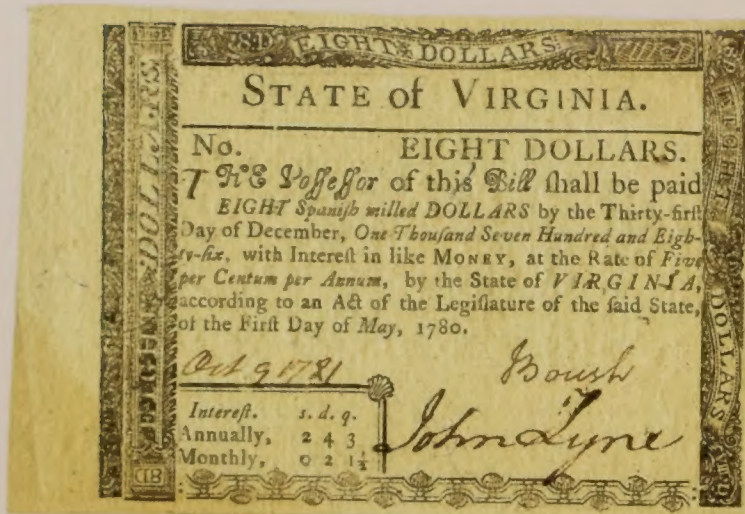 EIGHT DOLLARS
STATE of VIRGINIA.
No. EIGHT DOLLARS.
THE Poſſeſſor of this Bill ſhall be paid
EIGHT Spaniſh milled DOLLARS by the Thirty-firſt
Day of December, One Thouſand Seven Hundred and Eigh-
ty-ſix, with Intereſt in like MONEY, at the Rate of Five
per Centum per Annum, by the State of VIRGINIA,
according to an Act of the Legiſlature of the ſaid State,
of the Firſt Day of May, 1780.
Oct 9 1781 Boush
John Lyne
Intereſt. s. d. q.
Annually, 2 4 3
Monthly, 0 2 1½
DOLLARS
EIGHT DOLLARS